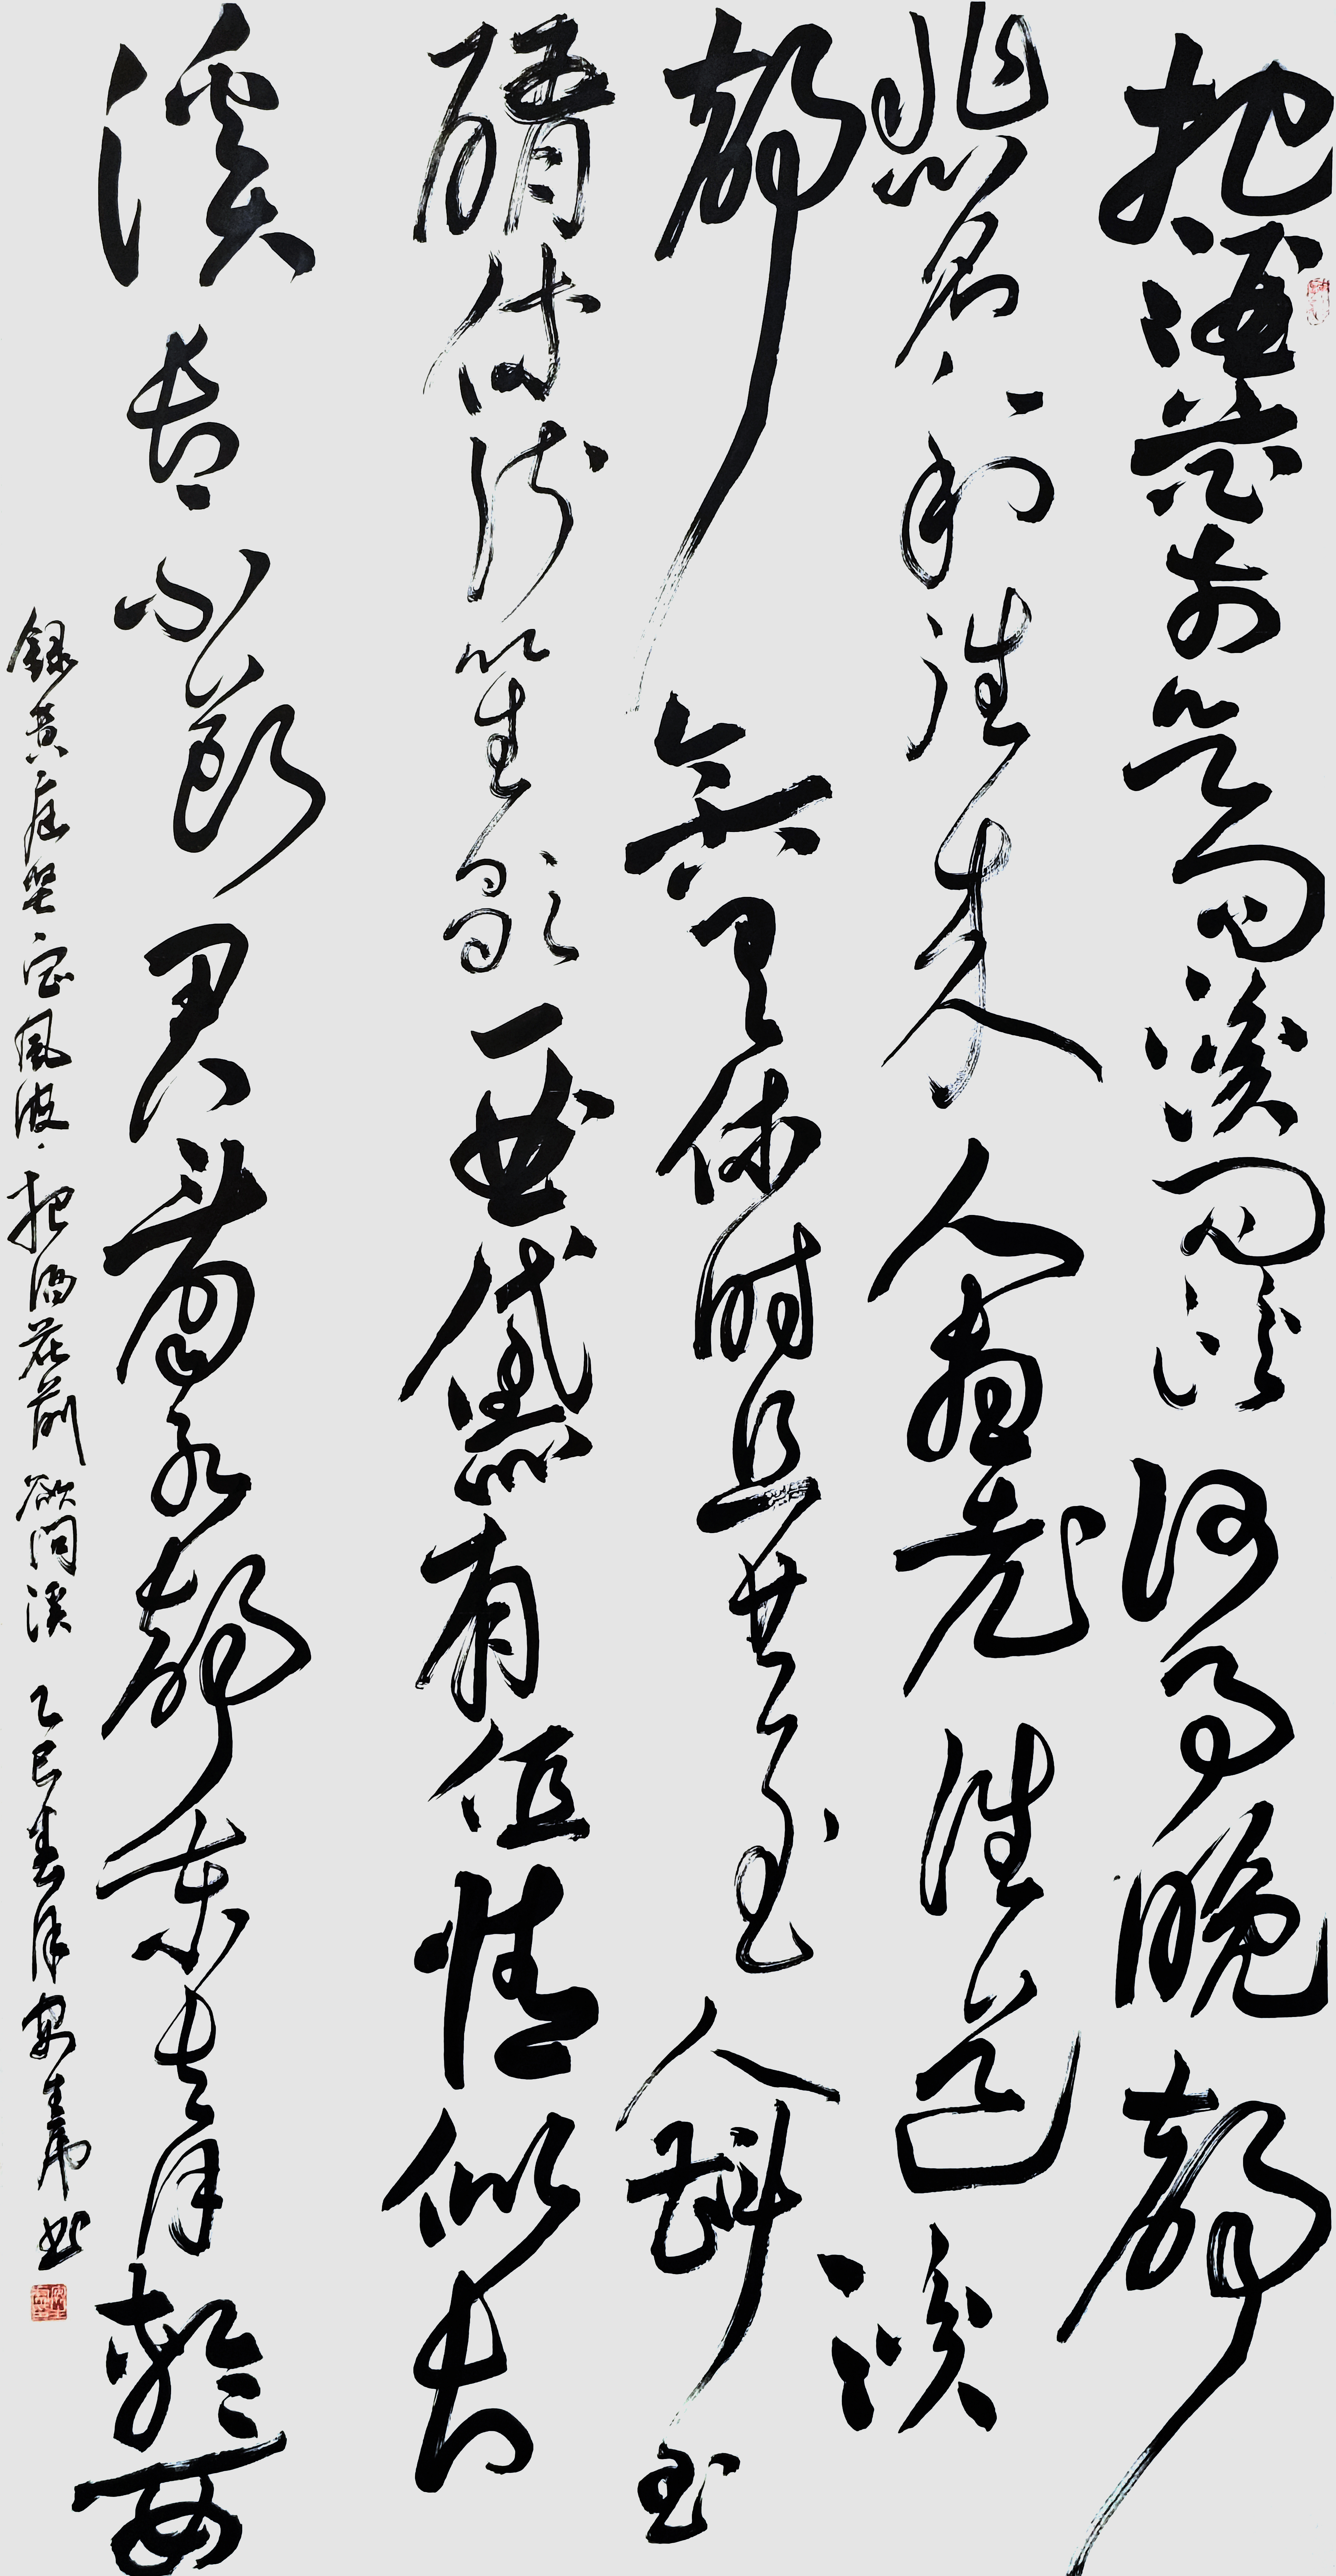 把酒花前欲问溪问溪何事晚聲
悲名利往来人盡老誰道溪
聲今古有休時且共玉人斟玉
醑休訴笙歌一曲黛眉低情似长
溪长不断君看水聲东去月輪西
録黄庭坚定風波·把酒花前欲问溪 乙巳春月安生书